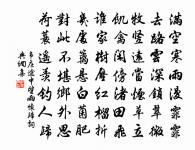 滿空寒雨漫霏霏
去路雲深鎖翠微
牧豎遠當煙草立
飢禽閒傍渚田飛
誰家樹壓紅榴折
幾處籬懸白菌肥
對此不堪鄉外思
荷蓑遙羨釣人歸
韋庄途中望雨懷歸詩